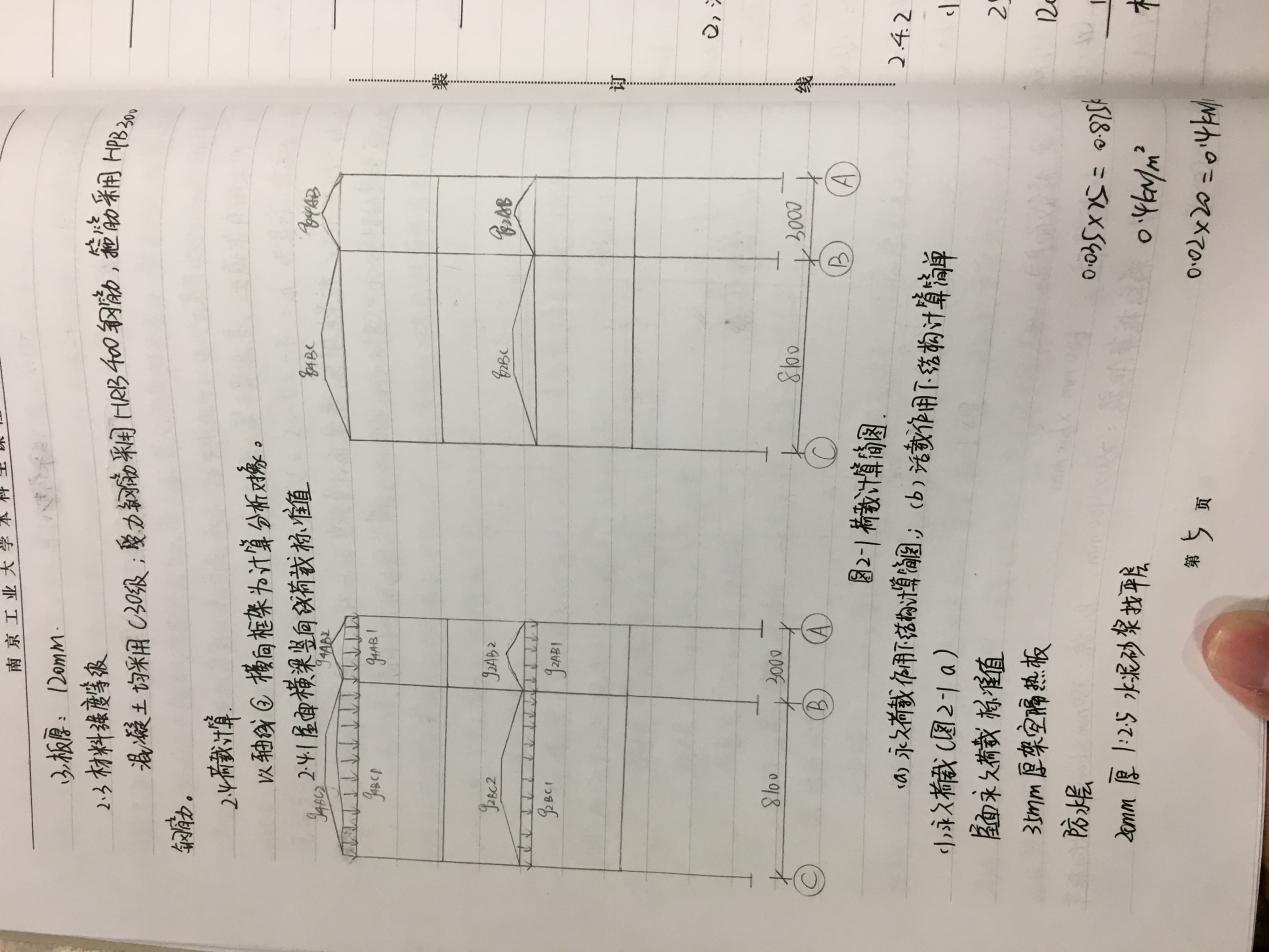 南京工业大学本科生课程
(3)板厚：120mm.
2.3 材料强度等级
混凝土均采用C30级；受力钢筋采用HRB400钢筋，箍筋采用HPB300
钢筋。
2.4荷载计算.
以轴线②横向框架为计算分析对象。
2.4.1 屋面横梁竖向线荷载标准值
g4BC2 g4AB2 q4BC q4AB
g4BC1 g4AB1
g2BC2 g2AB2 q2BC q2AB
g2BC1 g2AB1
8100 3000 8100 3000
C B A C B A
图2-1 荷载计算简图.
(a) 永久荷载作用下结构计算简图； (b) 活载作用下结构计算简单
(1) 永久荷载(图2-1 a)
屋面永久荷载标准值
35mm厚架空隔热板 0.035×25=0.875k
防水层 0.4kN/m²
20mm厚 1:2.5 水泥砂浆找平层 0.02×20=0.4kN/
第 5 页
装 订 线
2.4.2